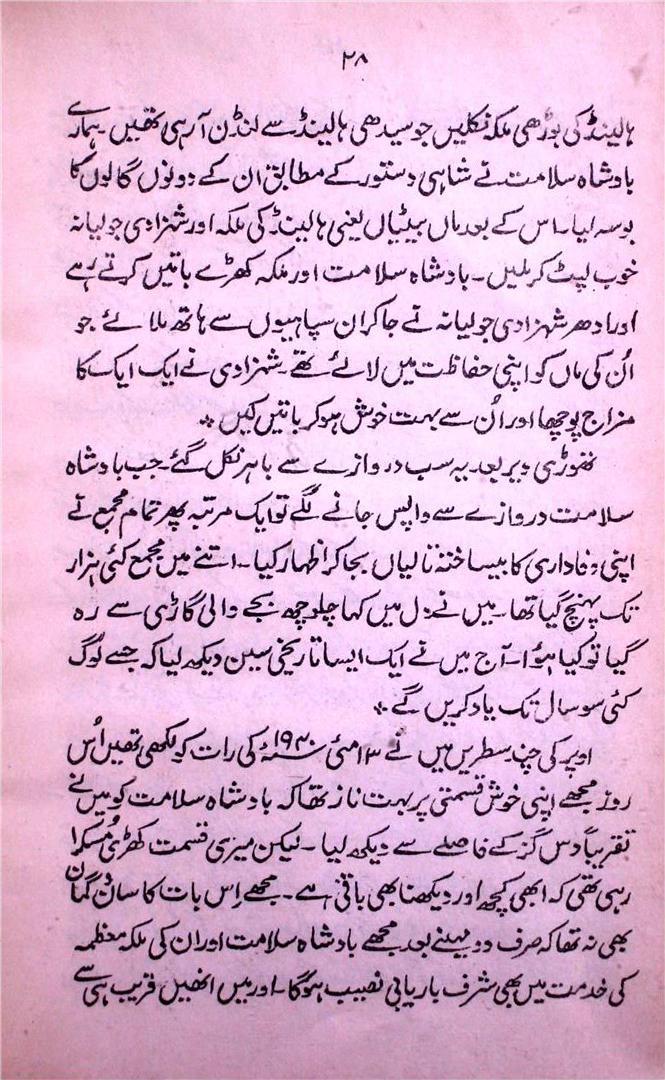 ۲۸
ہالینڈ کی بوڑھی ملکہ نکلیں جو سیدھی ہالینڈ سے لنڈن آ رہی تھیں۔ ہمارے
بادشاہ سلامت نے شاہی دستور کے مطابق ان کے دونوں گالوں کا
بوسہ لیا۔ اس کے بعد ماں بیٹیاں یعنی ہالینڈ کی ملکہ اور شہزادی جولیانہ
خوب لپٹ کر ملیں۔ بادشاہ سلامت اور ملکہ کھڑے باتیں کرتے رہے
اور ادھر شہزادی جولیانہ نے جا کر ان سپاہیوں سے ہاتھ ملائے جو
اُن کی ماں کو اپنی حفاظت میں لائے تھے۔ شہزادی نے ایک ایک کا
مزاج پوچھا اور اُن سے بہت خوش ہو کر باتیں کیں ٭
تھوڑی دیر بعد یہ سب دروازے سے باہر نکل گئے۔ جب بادشاہ
سلامت دروازے سے واپس جانے لگے تو ایک مرتبہ پھر تمام مجمع نے
اپنی وفاداری کا بیساختہ تالیاں بجا کر اظہار کیا۔ اتنے میں مجمع کئی ہزار
تک پہنچ گیا تھا۔ میں نے دل میں کہا چلو چھ بجے والی گاڑی سے رہ
گیا تو کیا ہوُا۔ آج میں نے ایک ایسا تاریخی سین دیکھ لیا کہ جسے لوگ
کئی سو سال تک یاد کریں گے ٭
اوپر کی چند سطریں میں نے ۱۳ مئی ۱۹۴۰ء کی رات کو لکھی تھیں اُس
روز مجھے اپنی خوش قسمتی پر بہت ناز تھا کہ بادشاہ سلامت کو میں نے
تقریباً دس گز کے فاصلے سے دیکھ لیا۔ لیکن میری قسمت کھڑی مُسکرا
رہی تھی کہ ابھی کچھ اور دیکھنا بھی باقی ہے۔ مجھے اِس بات کا سان گمان
بھی نہ تھا کہ صرف دو مہینے بعد مجھے بادشاہ سلامت اور ان کی ملکہ معظمہ
کی خدمت میں بھی شرف باریابی نصیب ہوگا۔ اور میں انھیں قریب ہی سے